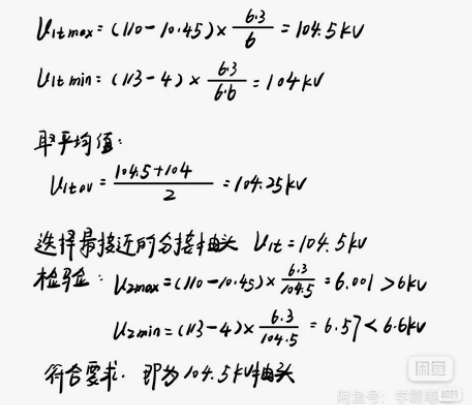 U1tmax = (110-10.45) × 6.3/6 = 104.5kV
U1tmin = (113-4) × 6.3/6.6 = 104kV
取平均值:
U1tav = 104.5+104/2 = 104.25kV
选择最接近的分接抽头 U1t = 104.5kV
检验: U2max = (110-10.45) × 6.3/104.5 = 6.001 > 6kV
U2min = (113-4) × 6.3/104.5 = 6.57 < 6.6kV
符合要求. 即为104.5kV抽头
闲鱼